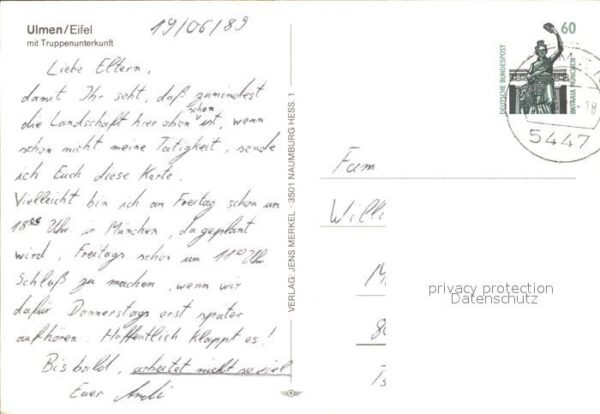 Ulmen/Eifel
mit Truppenunterkunft
19/06/89
Liebe Eltern,
damit Ihr seht, daß zumindest
die Landschaft hier oben schön ist, wenn
schon nicht meine Tätigkeit, sende
ich Euch diese Karte.
Vielleicht bin ich am Freitag schon um
18 00 Uhr in München, da geplant
wird, Freitags schon um 11 00 Uhr
Schluß zu machen, wenn wir
dafür Donnerstags erst später
aufhören. Hoffentlich klappt es!
Bis bald, arbeitet nicht so viel
Euer Andi
VERLAG JENS MERKEL · 3501 NAUMBURG HESS. 1
60
DEUTSCHE BUNDESPOST
BAVARIA MÜNCHEN
5447
Fam
Willi
M
8
privacy protection
Datenschutz